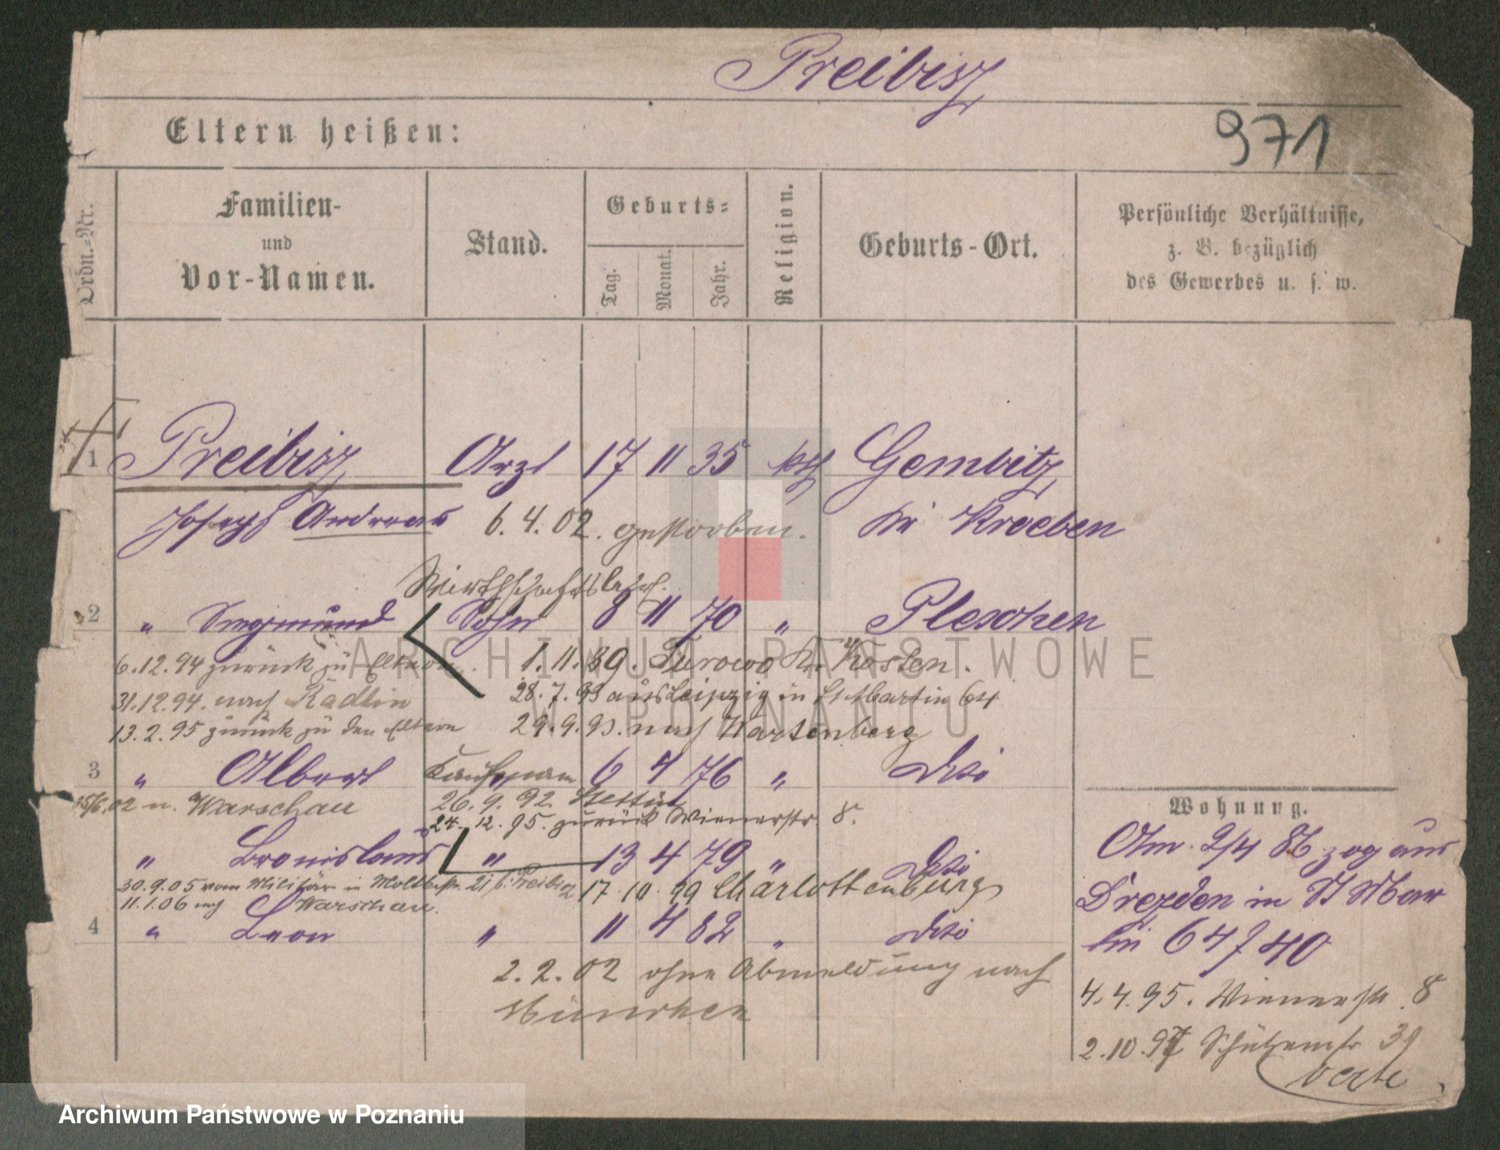 Preibisz
971
Eltern heißen:
Ordn.-Nr.
Familien-
und
Vor-Namen.
Stand.
Geburts-
Tag.
Monat.
Jahr.
Religion.
Geburts-Ort.
Persönliche Verhältnisse,
z. B. bezüglich
des Gewerbes u. s. w.
1 Preibisz Arzt 17 11 35 kth Gembitz
Joseph Andreas 6.4.02. gestorben. Kr Kroeben
2 " Siegmund Sohn 8 11 70 " Pleschen
6.12.94 zurück zu Eltern 1.11.89. Turowo Kr Kosten.
31.12.94. nach Radlin 28.7.93 aus Leipzig in St Martin 64
13.2.95 zurück zu den Eltern 29.9.93. nach Wartenberg
3 " Albert Kaufmann 6 4 76 " dito
02 n. Warschau 26.9.92. Stettin
24.12.95. zurück Wienerstr. 8.
" Bronislaus " 13 4 79 " dito
30.9.05 vom Militär in 17 10 99 Charlottenburg
11.1.06 nach Warschau.
4 " Leon " 11 4 82 " dito
2.2.02 ohne Abmeldung nach
München
Wohnung.
Am 2/4 86 zog aus
Dresden in St Mar
tin 64 / 40
4.4.95. Wienerstr. 8
2.10.97 Schützenstr 39
verte
ARCHIWUM PAŃSTWOWE
W POZNANIU
Archiwum Państwowe w Poznaniu